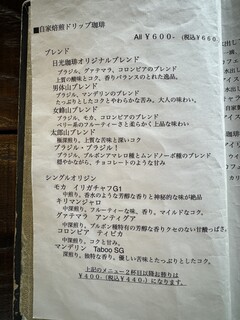 ■自家焙煎ドリップ珈琲
All ￥600-（税込￥660
ブレンド
日光珈琲オリジナルブレンド
ブラジル、グァテマラ、コロンビアのブレンド
上質の酸味とコク、香りバランスのとれた逸品。
男体山ブレンド
ブラジル、マンデリンのブレンド
たっぷりとしたコクとやわらかな苦み。大人の味わい。
女峰山ブレンド
ブラジル、モカ、コロンビアのブレンド
ベリー系のフルーティーさと柔らかく上品な味わい
太郎山ブレンド
極深煎り。上質な苦味と深いコク
ブラジル・ブラジル！
ブラジル、ブルボンアマレロ種とムンドノーボ種のブレンド
穏やかながら、チョコレートのような甘み
シングルオリジン
モカ イリガチャフG1
中煎り、香水のような芳醇な香りと神秘的な味が絶品
キリマンジャロ
中深煎り、フルーティーな味、香り。マイルドなコク。
グァテマラ アンティグア
中深煎り、ブルボン種特有の芳醇な香りクセのない甘酸っぱさ。
コロンビア ティピカ
中深煎り、コクと甘み。
マンデリン Taboo SG
深煎り、独特な香り。優しい苦味とたっぷりとしたコク。
上記のメニュー2杯目以降お替りは
￥400-（￥440-）になります。